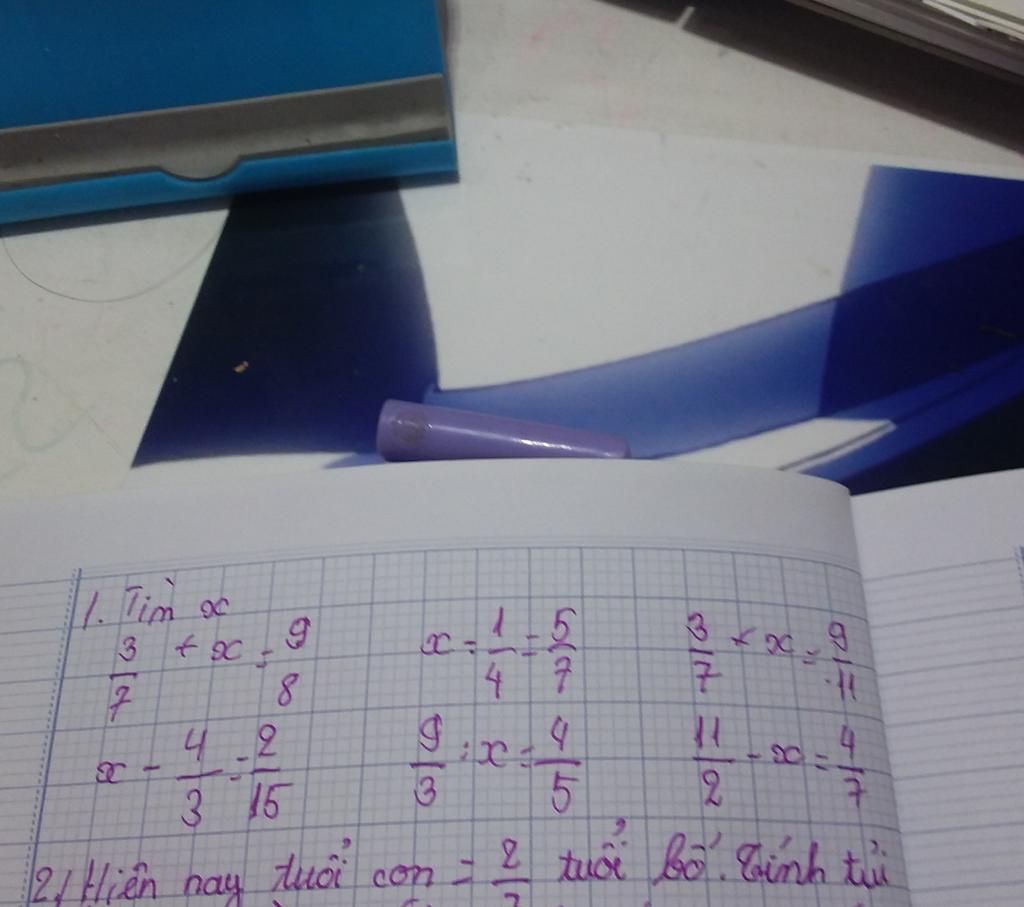 1. Tìm x
3/7 + x = 9/8 x = 1/4 = 5/7 3/7 + x = 9/11
x - 4/3 = 2/15 9/3 : x = 4/5 11/2 - x = 4/7
2, Hiện nay tuổi con = 2/ tuổi bố. Tính